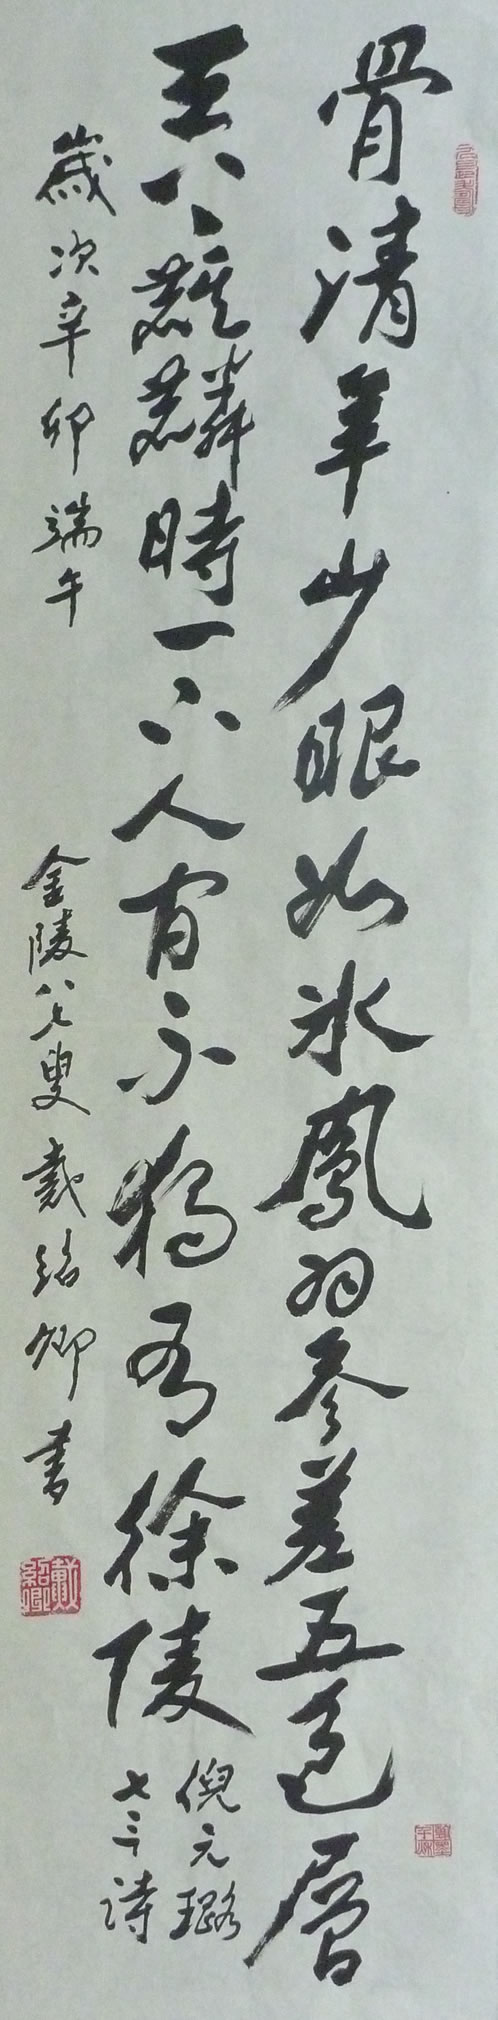 骨清年少眼如冰鳳羽參差五色層
天上麒麟時一下人間不獨有徐陵
倪元璐
七言詩
歲次辛卯端午 金陵八七叟戴紹卿書
戴紹卿